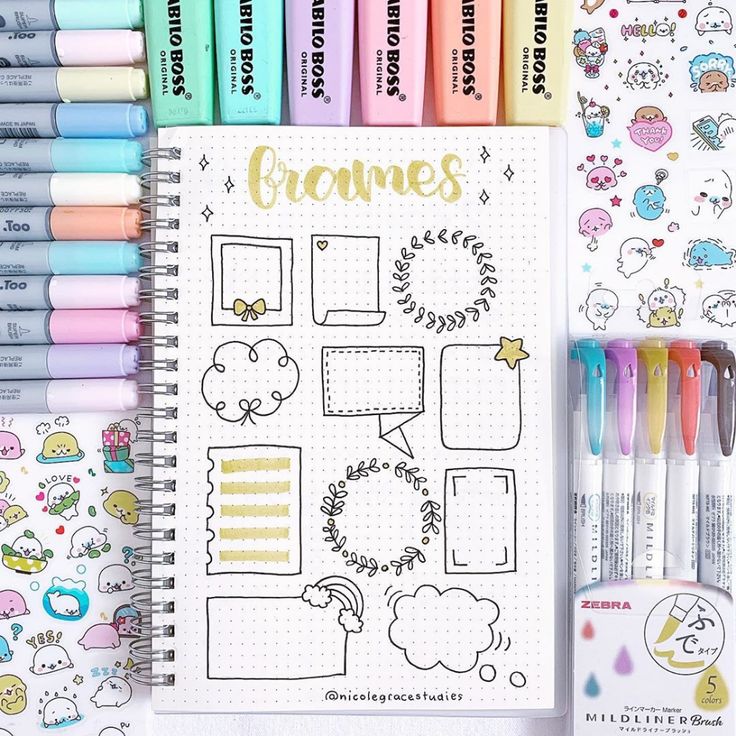 STABILO BOSS
ORIGINAL
STABILO BOSS
ORIGINAL
STABILO BOSS
ORIGINAL
STABILO BOSS
ORIGINAL
STABILO BOSS
ORIGINAL
STABILO BOSS
ORIGINAL
.Too
.Too
.Too
MADE IN JAPAN
frames
@nicolegracestudies
HELLO!
SORRY
THANK YOU
LOVE
YES!
ZZZ
ZEBRA
ふで
タイプ
5
colors
ラインマーカー Marker
MILDLINER Brush
マイルドライナーブラッシュ